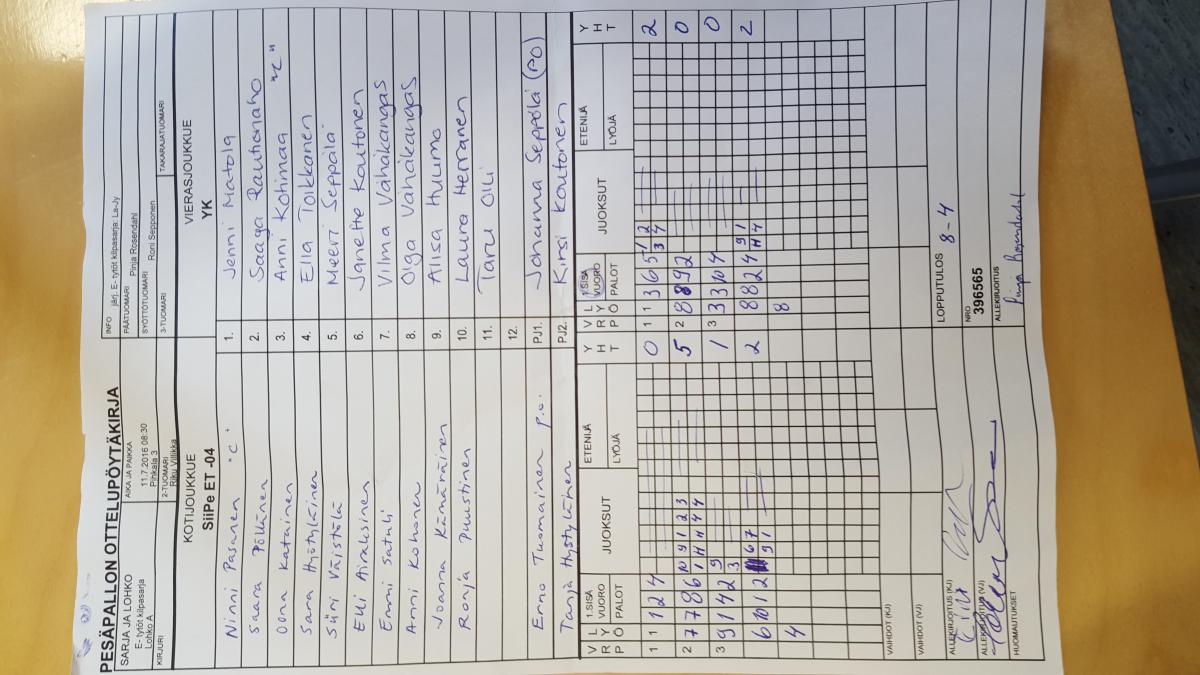 PESÄPALLON OTTELUPÖYTÄKIRJA
SARJA JA LOHKO
E- tytöt kilpasarja
Lohko A
AIKA JA PAIKKA
11.7.2016 08:30
Pihkala 3
INFO järj. E- tytöt kilpasarja: La-Jy
PÄÄTUOMARI Pinja Rosendahl
SYÖTTÖTUOMARI Roni Sepponen
KIRJURI
2-TUOMARI
Riku Villikka
3-TUOMARI
TAKARAJATUOMARI
KOTIJOUKKUE
SiiPe ET -04
VIERASJOUKKUE
YK
Ninni Pasanen "C" 1. Jenni Matola
Saara Pölkänen 2. Saaga Rautionaho
Oona Katainen 3. Anni Kotimaa "C"
Sara Hyötyläinen 4. Ella Toikkanen
Siiri Väistölä 5. Meeri Seppälä
Elli Airaksinen 6. Janette Koutonen
Emmi Satuli 7. Vilma Vähäkangas
Anni Kohonen 8. Olga Vähäkangas
Joanna Kämäräinen 9. Alisa Hulumo
Ronja Puustinen 10. Laura Herranen
11. Taru Olli
12.
Erno Tuomainen p.o. PJ1. Johanna Seppälä (PO)
Tanja Hystyläinen PJ2. Kirsi Koutonen
VRP LYÖ 1.SISÄ VUORO PALOT JUOKSUT ETENIJÄ LYÖJÄ YHT
VRP LYÖ 1.SISÄ VUORO PALOT JUOKSUT ETENIJÄ LYÖJÄ YHT
1 1 1 2 4 0
1 1 3 6 5 1 2 3 4 2
2 7 7 8 6 10 9 1 2 3 1 H H 4 4 5
2 8 8 9 2 0
3 9 1 4 2 9 3 1
3 1 3 3 10 4 0
6 10 1 2 6 7 9 1 2
8 8 2 4 9 1 H 4 2
4
8
VAIHDOT (KJ)
VAIHDOT (VJ)
LOPPUTULOS 8-4
ALLEKIRJOITUS (KJ)
NRO
396565
ALLEKIRJOITUS (VJ)
ALLEKIRJOITUS
Pinja Rosendahl
HUOMAUTUKSET